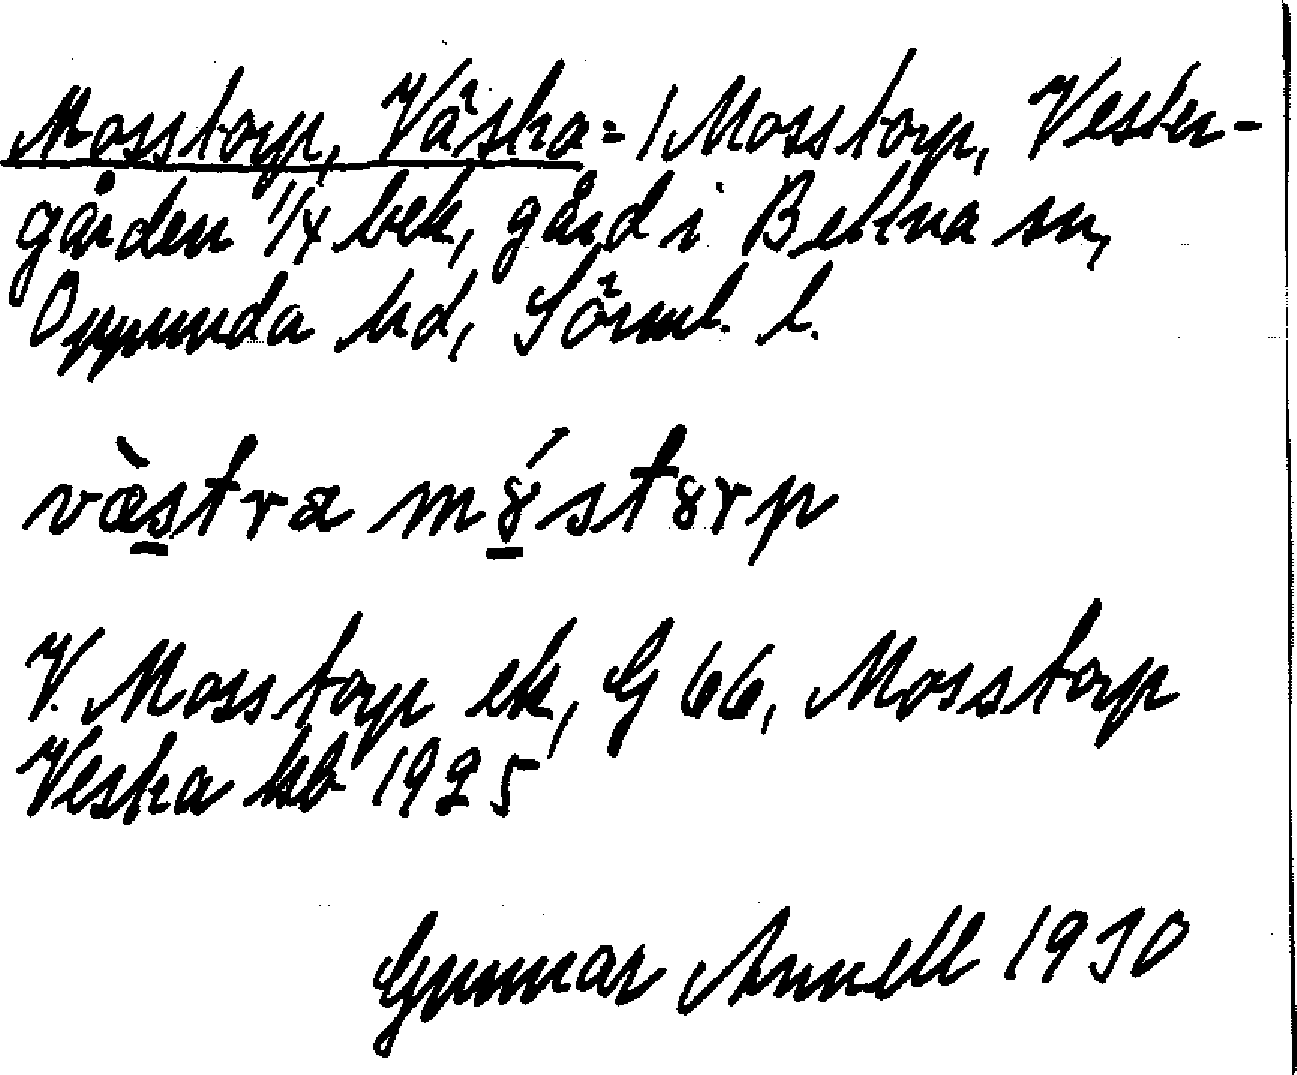 Mosstorp, Västra = / Mosstorp, Vester-
gården 1/4 bek, gård i Bettna sn,
Oppunda hd, Sörml. l.
và̠stra mó̠storp
V. Mosstorp ek, G 66, Mosstorp
Vestra kb 1925
Gunnar Annell 1930